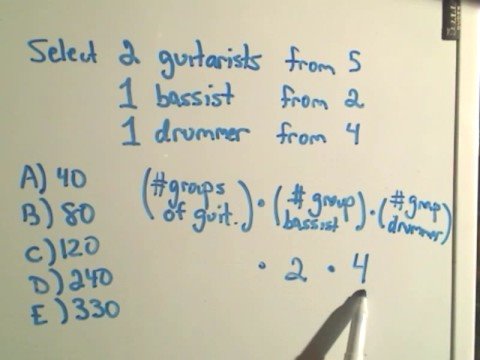 Select 2 guitarists from 5
1 bassist from 2
1 drummer from 4
A) 40
B) 80
C) 120
D) 240
E) 330
(#groups of guit.) • (#group bassist) • (#group drummer)
• 2 • 4